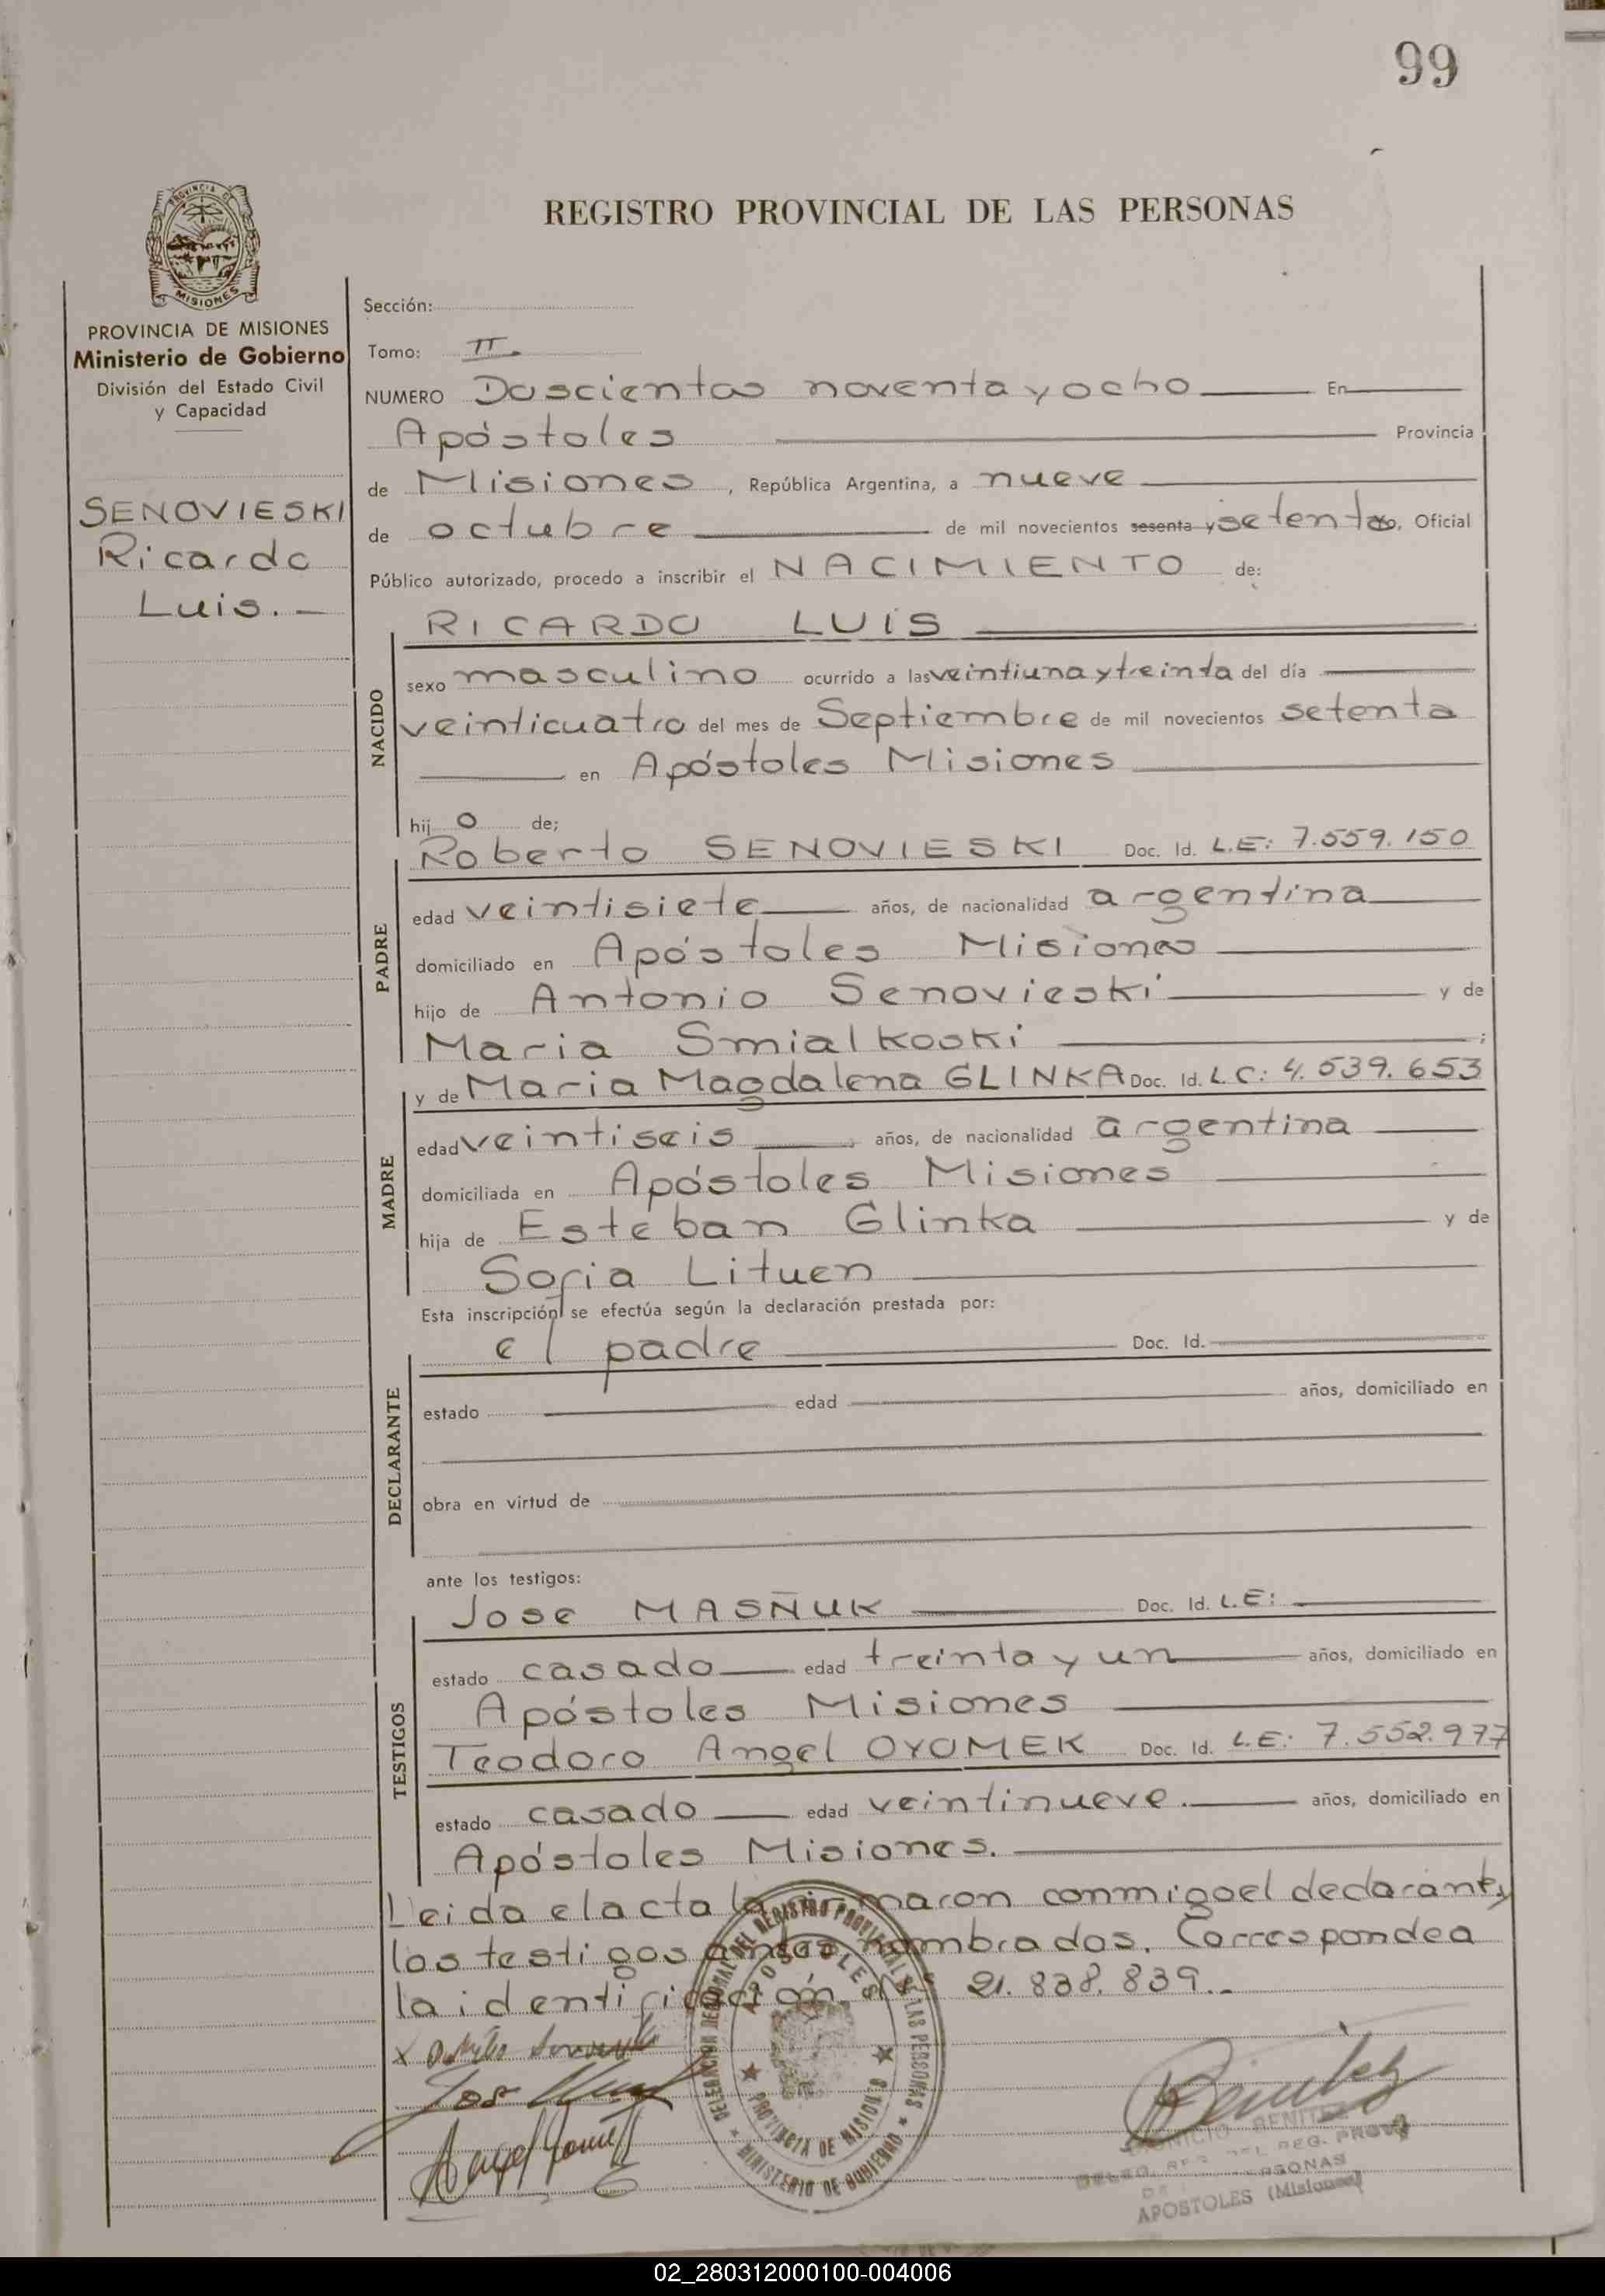 99
PROVINCIA DE
MISIONES
REGISTRO PROVINCIAL DE LAS PERSONAS
PROVINCIA DE MISIONES
Ministerio de Gobierno
División del Estado Civil
y Capacidad
SENOVIESKI
Ricardo
Luis. —
Sección:
Tomo: II
NUMERO Doscientos noventa y ocho En
Apóstoles Provincia
de Misiones, República Argentina, a nueve
de octubre de mil novecientos sesenta y setenta, Oficial
Público autorizado, procedo a inscribir el NACIMIENTO de:
NACIDO
RICARDO LUIS
sexo masculino ocurrido a las veintiuna y treinta del día
veinticuatro del mes de Septiembre de mil novecientos setenta
en Apóstoles Misiones
hijo de;
PADRE
Roberto SENOVIESKI Doc. Id. L.E: 7.559.150
edad veintisiete años, de nacionalidad argentina
domiciliado en Apóstoles Misiones
hijo de Antonio Senovieski y de
Maria Smialkoski ;
MADRE
y de Maria Magdalena GLINKA Doc. Id. L.C: 4.539.653
edad veintiseis, años, de nacionalidad argentina
domiciliada en Apóstoles Misiones
hija de Esteban Glinka y de
Sofia Lituen
Esta inscripción se efectúa según la declaración prestada por:
DECLARANTE
el padre Doc. Id.
estado edad años, domiciliado en
obra en virtud de
ante los testigos:
TESTIGOS
Jose MASÑUK Doc. Id. L.E:
estado casado edad treinta y un años, domiciliado en
Apóstoles Misiones
Teodoro Angel OYOMEK Doc. Id. L.E: 7.552.977
estado casado edad veintinueve. años, domiciliado en
Apóstoles Misiones.
Leida el acta la firmaron conmigo el declarante y
los testigos antes nombrados. Corresponde a
la identificación Nº 21.838.839..
DELEGACION REGIONAL DEL REGISTRO PROVINCIAL DE LAS PERSONAS
APOSTOLES
PROVINCIA DE MISIONES
MINISTERIO DE GOBIERNO
Benitez
BENITEZ
DEL REG. PROV.
APOSTOLES (Misiones)
02_280312000100-004006